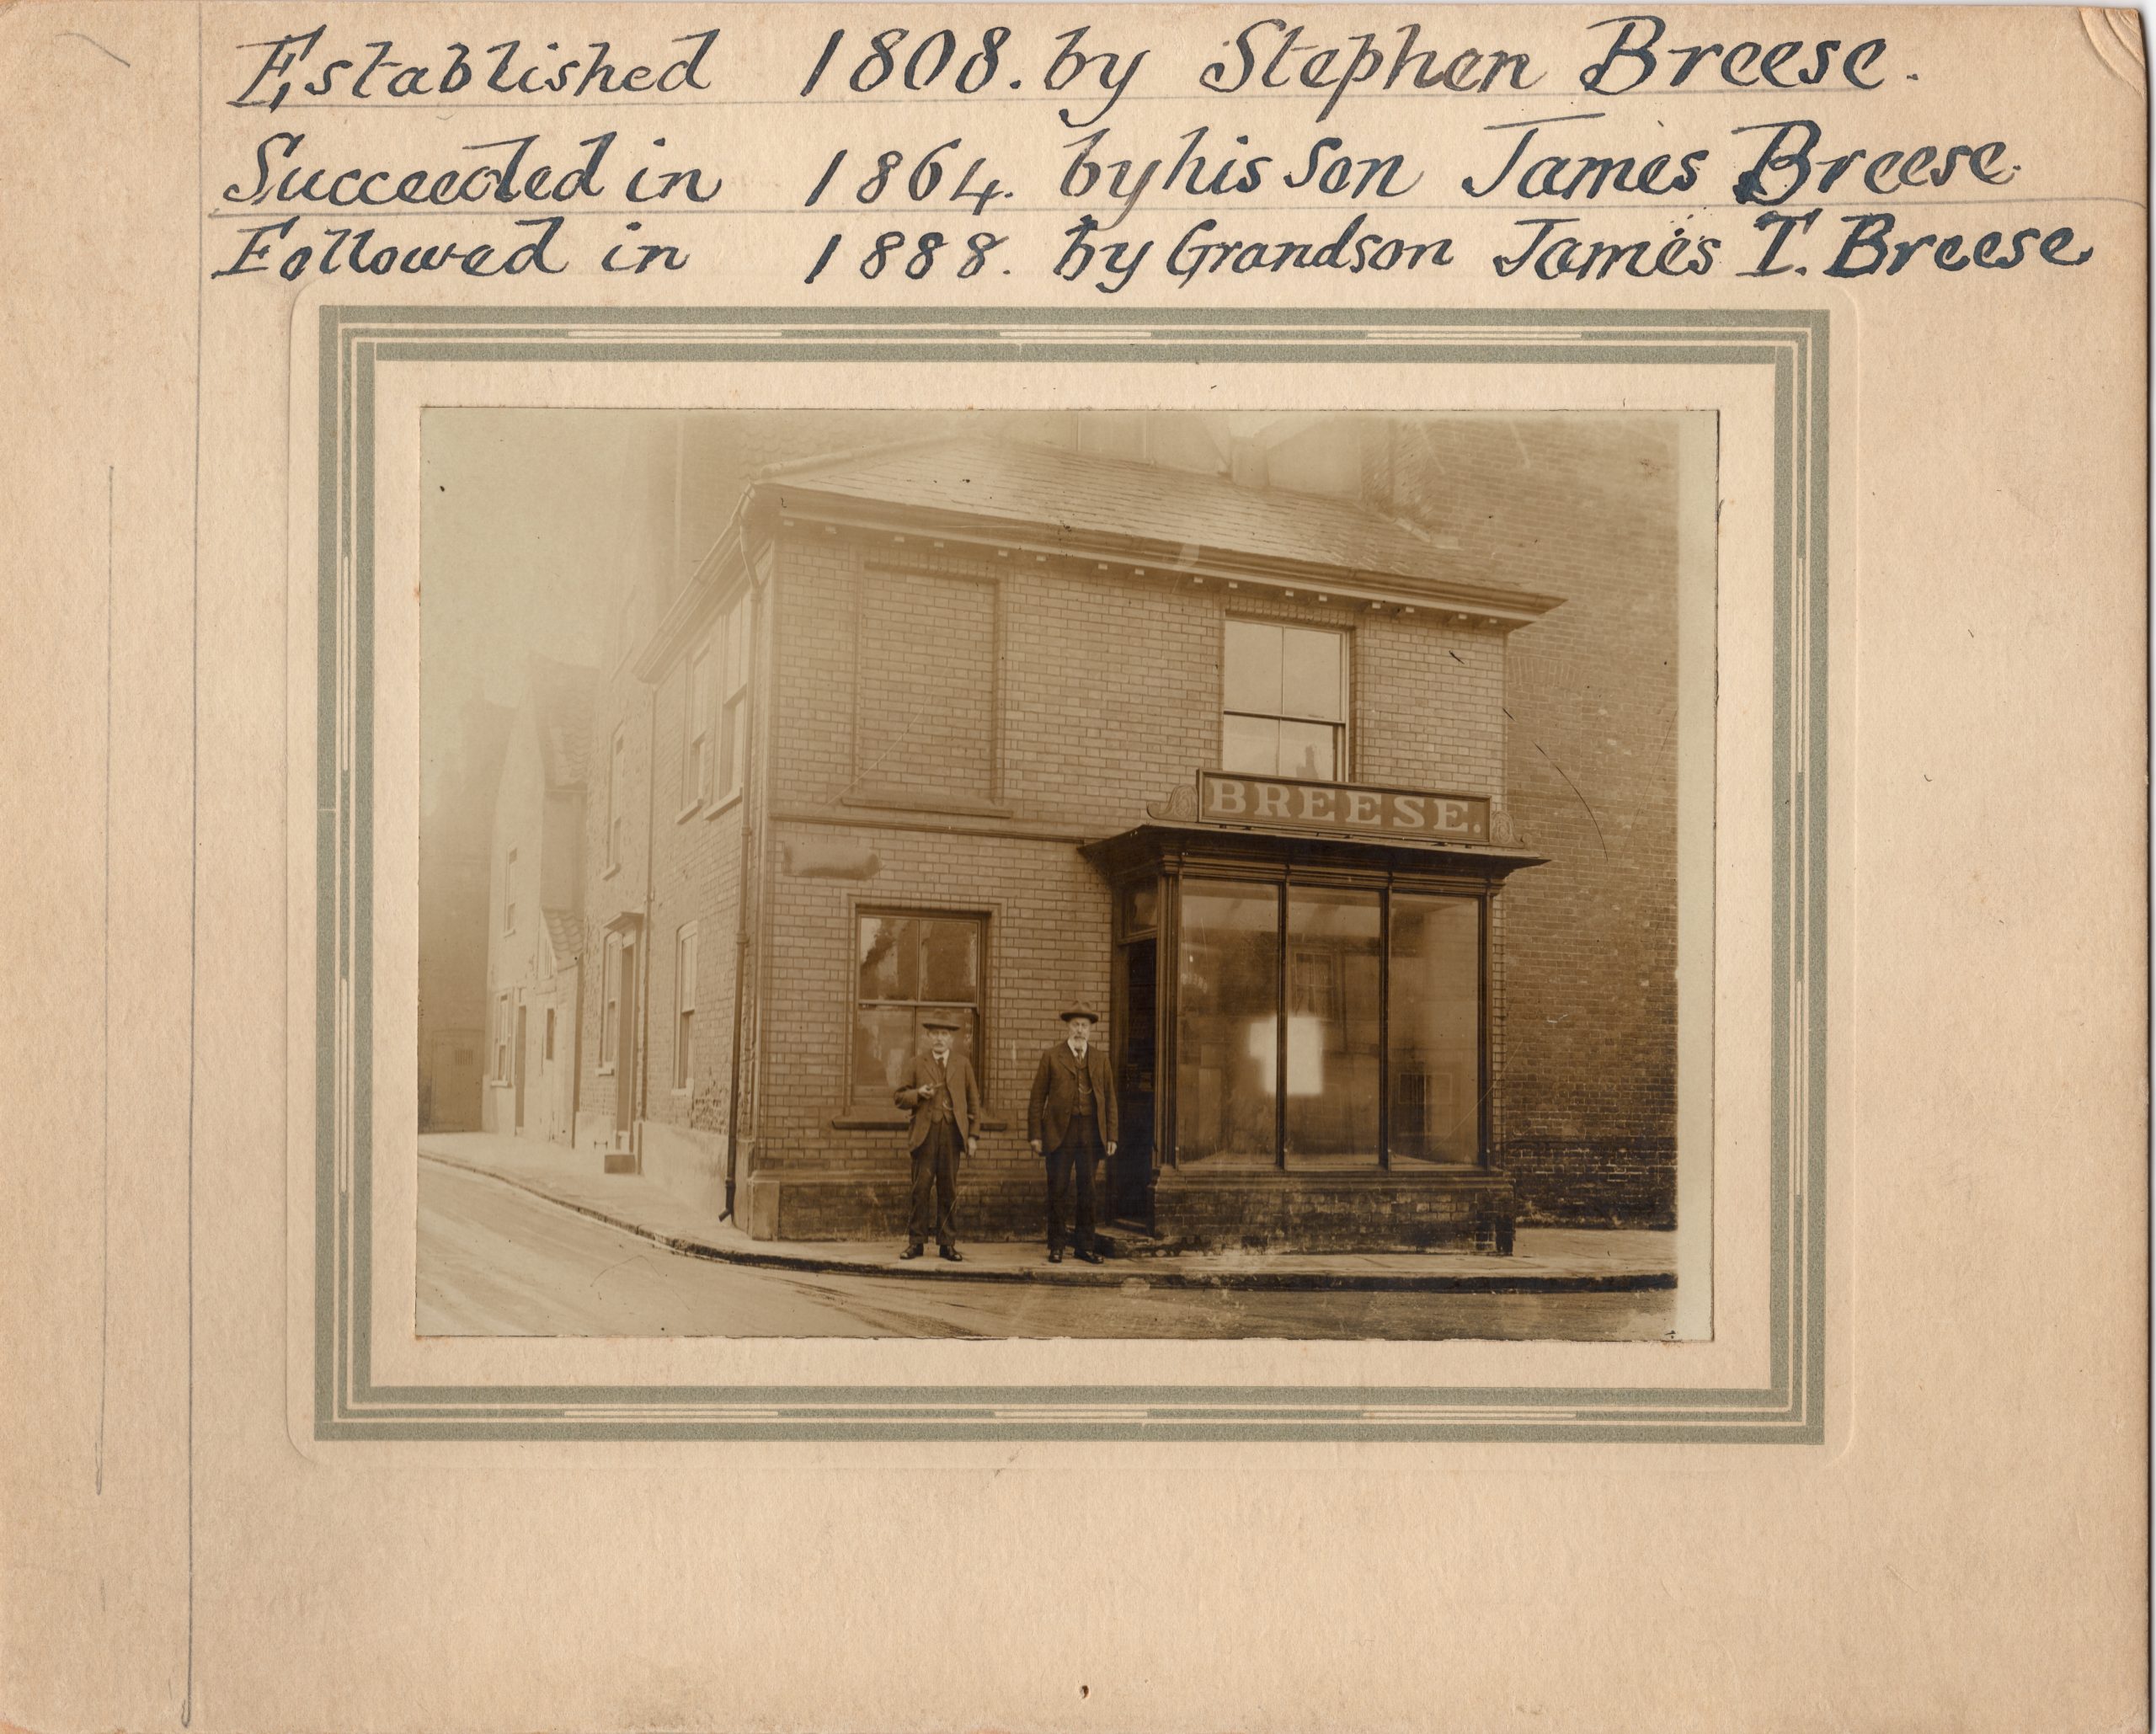 Established 1808. by Stephen Breese.
Succeeded in 1864. by his Son James Breese.
Followed in 1888. by Grandson James T. Breese
BREESE.